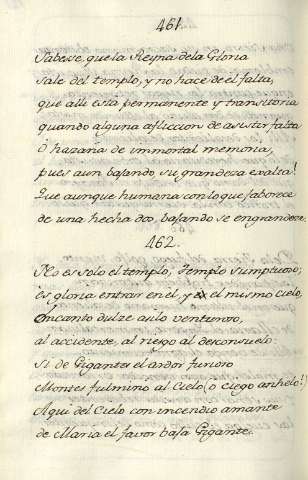 461.
Sabese, que la Reyna de la Gloria
sale del templo, y no hace de el falta,
que alli está permanente y transitoria
quando alguna afliccion de asistir falta
O hazaña de immortal memoria,
pues aun bajando, su grandeza exalta!
Que aunque humana con lo que faborece
de una hecha dos, bajando se engrandece.
462.
No es solo el templo, Templo sumptuoso;
es gloria entrar en el, y el mesmo cielo,
Encanto dulze asilo venturoso,
al accidente, al riesgo al desconsuelo
Si de Gigantes el ardor furioso
Montes fulminó al Cielo (o ciego anhelo!)
Aqui del Cielo con incendio amante
de Maria el favor baja Gigante.